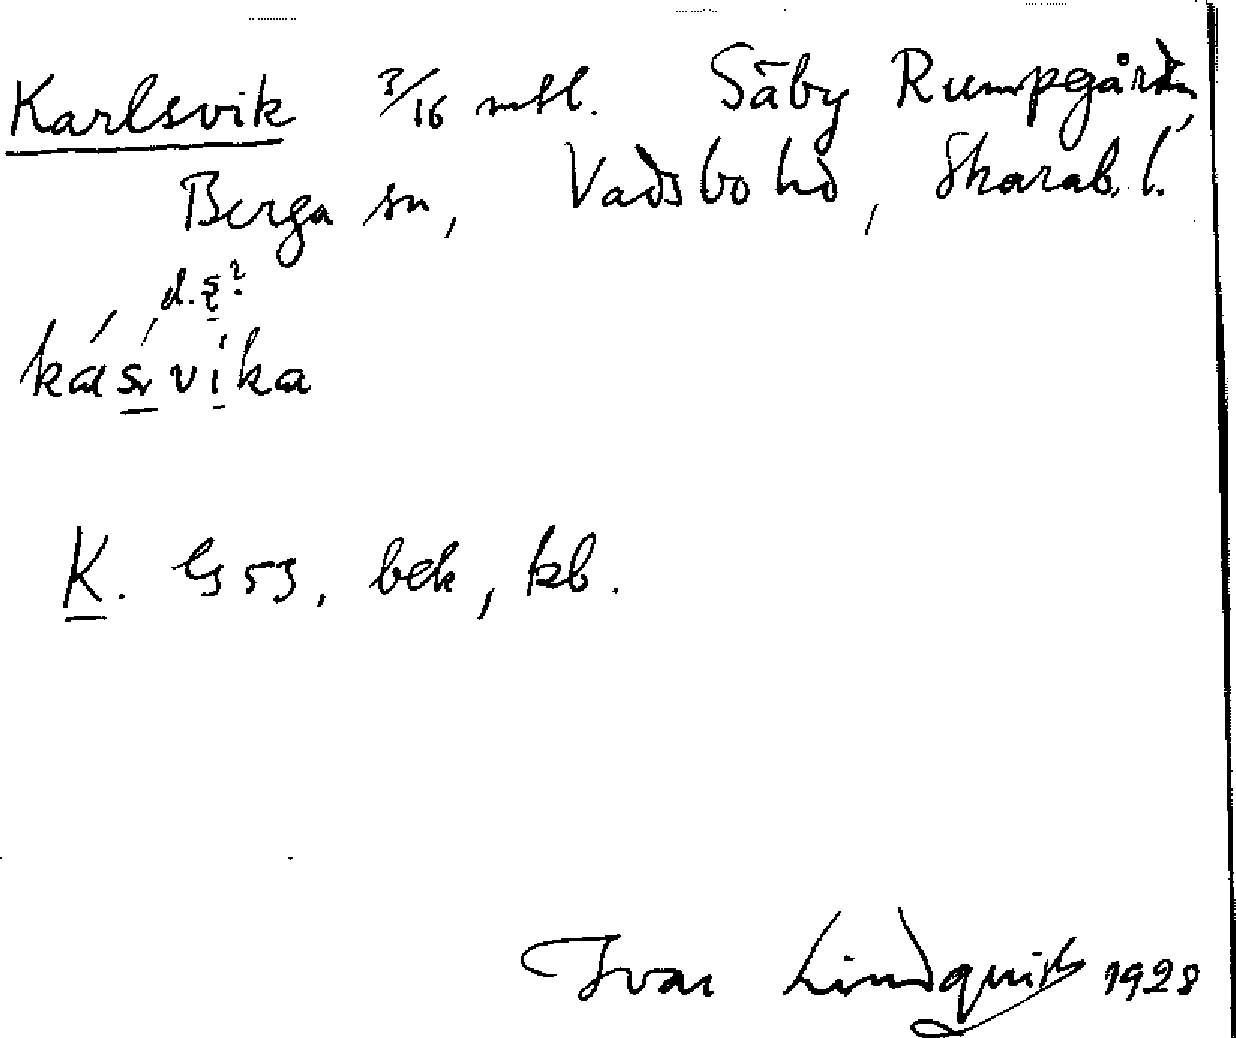 Karlsvik 3/16 mtl. Säby Rumpgården,
Berga sn, Vadsbo hd, Skarab. l.
d. s?
kásvika
K. GS 53, bek, kb.
Ivar Lindquist 1928